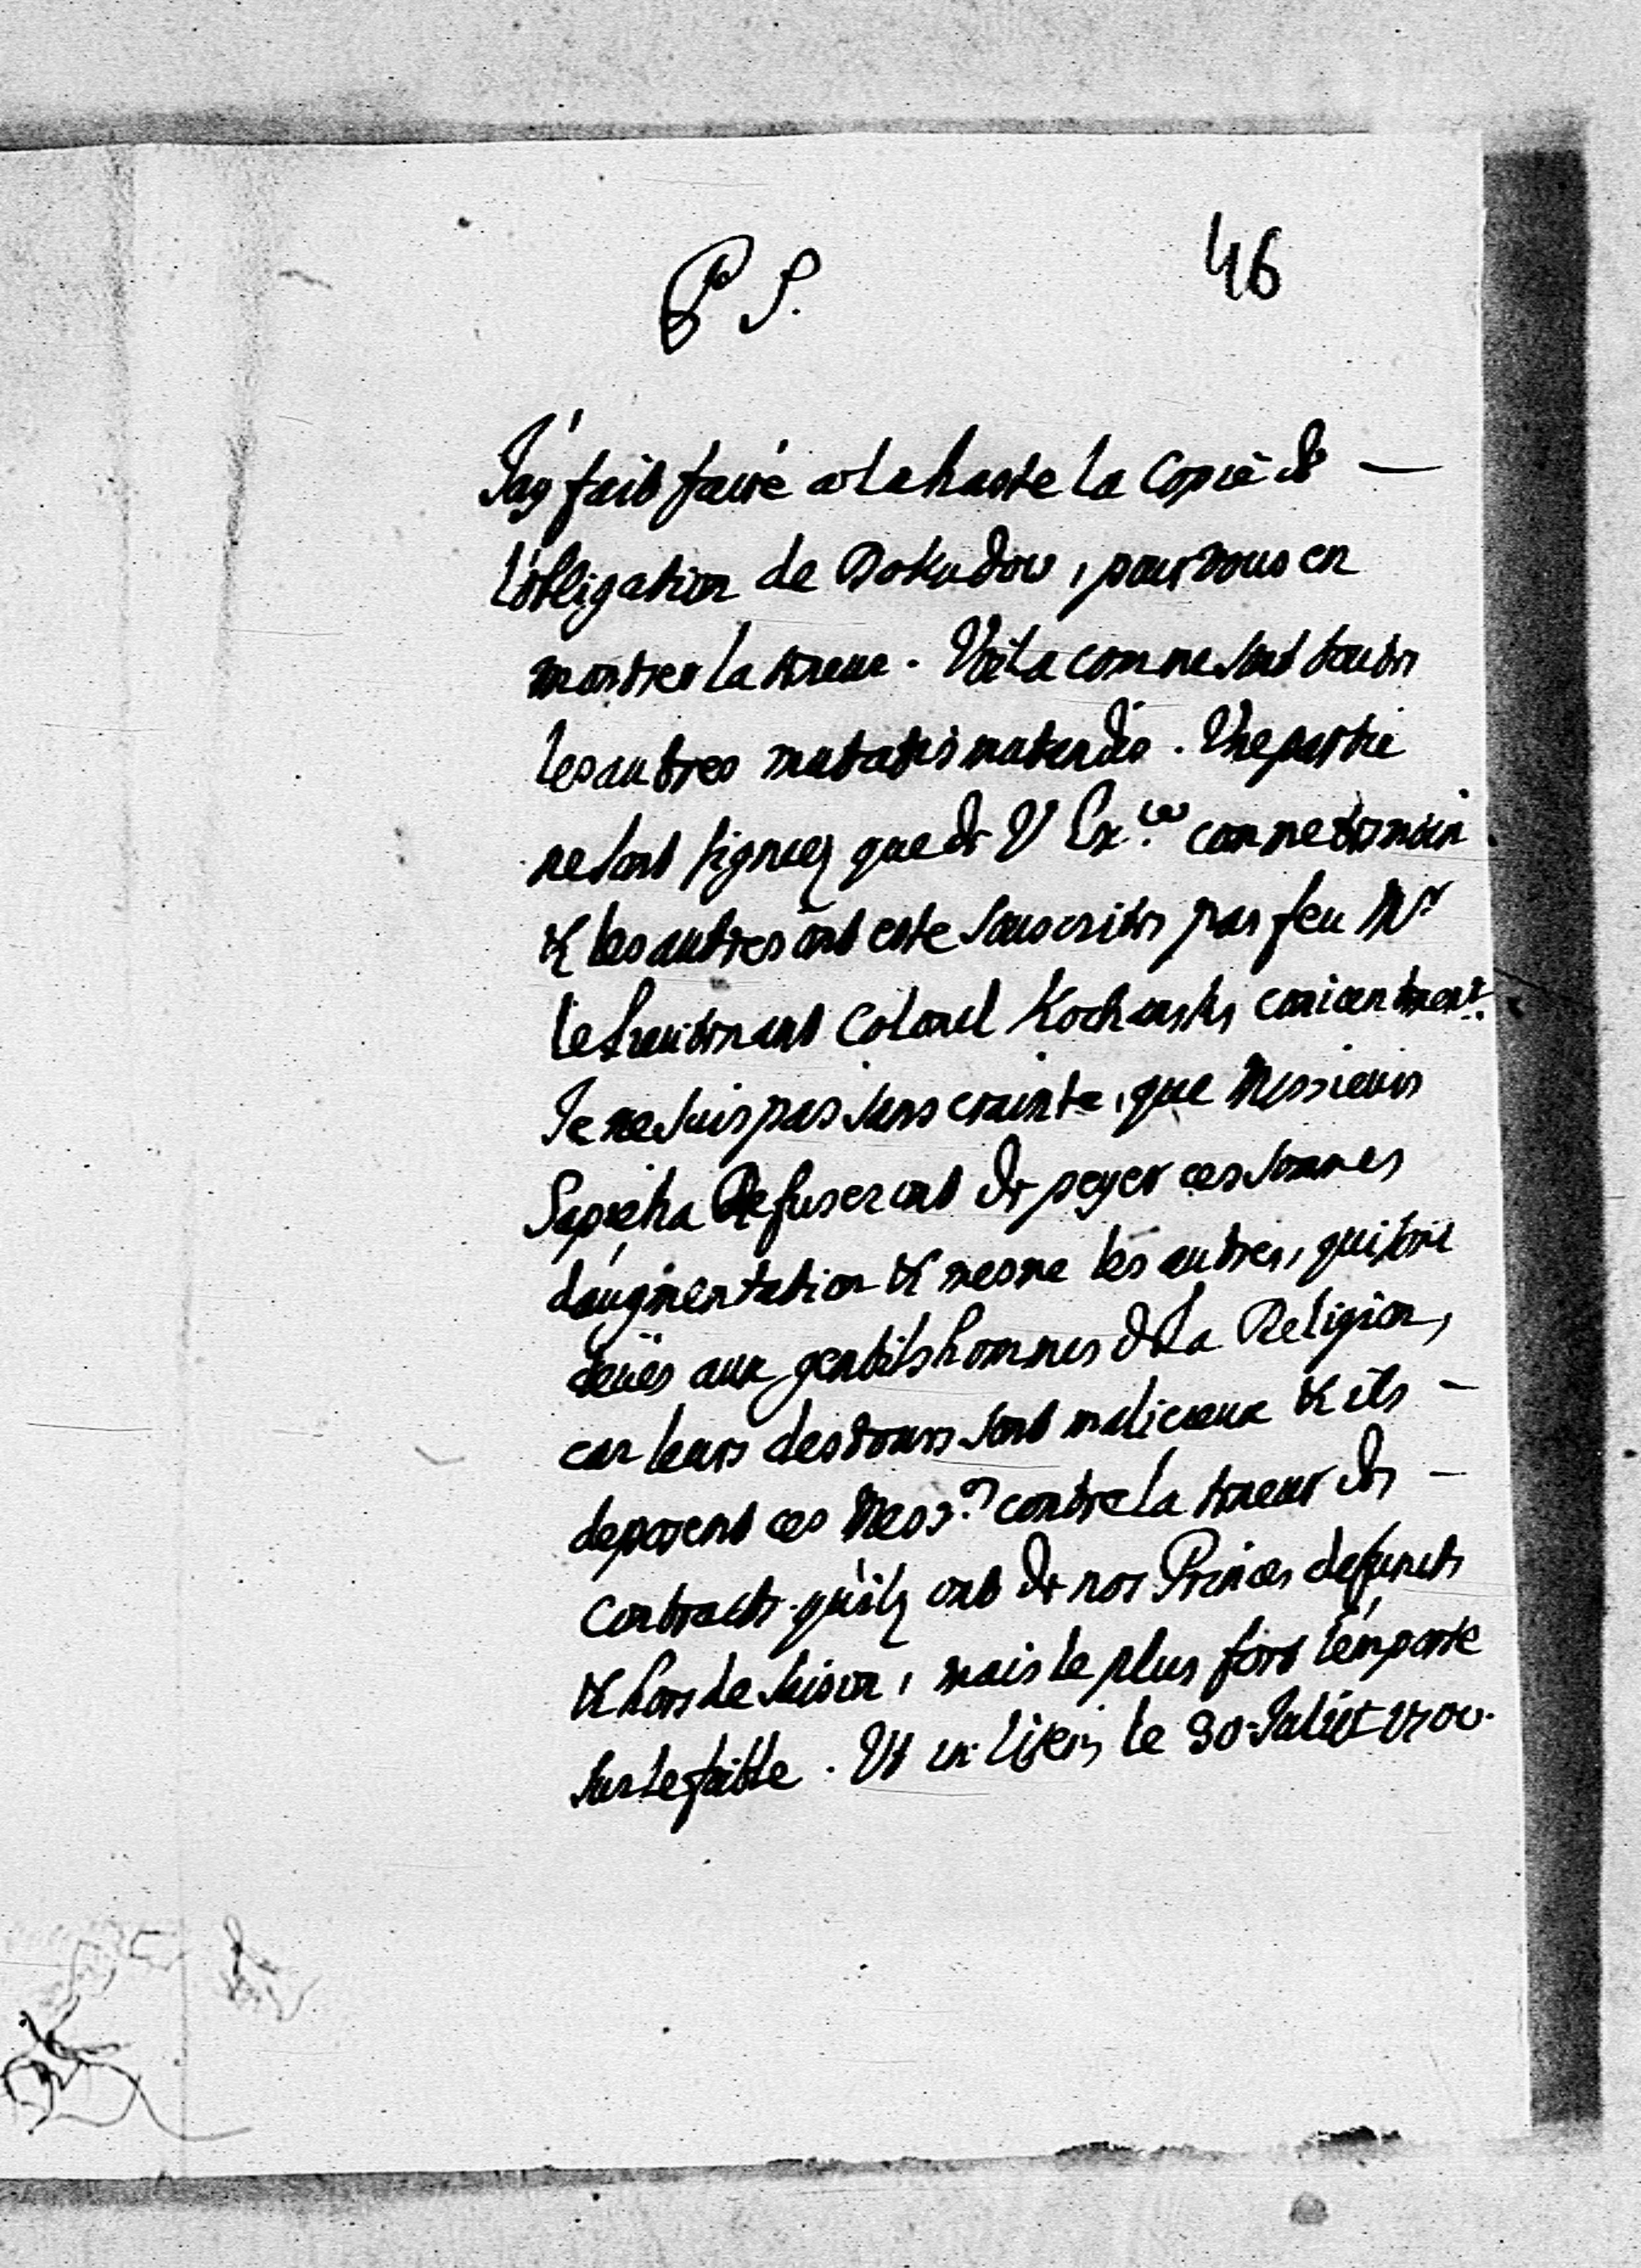 P S.
46
J'ay fait faire a la haste la Copie de —
l'obligation de Dokudow, pour vous en
monstrer la teneur. Voila comme sont toutes
les autres mutatis mutandis. Une partie
ne sont signeez que de V Ex.ce comme temoin
& les autres ont esté souscrites par feu Mr
le Lieutenant Colonel Kochanski conjointement.
Je ne suis pas sans crainte, que Messieurs
Sapieha Refuseront de peyer ces sommes
d'augmentation & mesme les autres, qui sont
deües aux gentilshommes de la Religion,
car leurs destours sont malicieux & ils —
deposent ces Mess.rs contre la teneur des —
contracts qu'ilz ont de nos Princes defuncts
& hors de saison, mais le plus fort l'emporte
sur le foible. Ut in le 30 Juliet